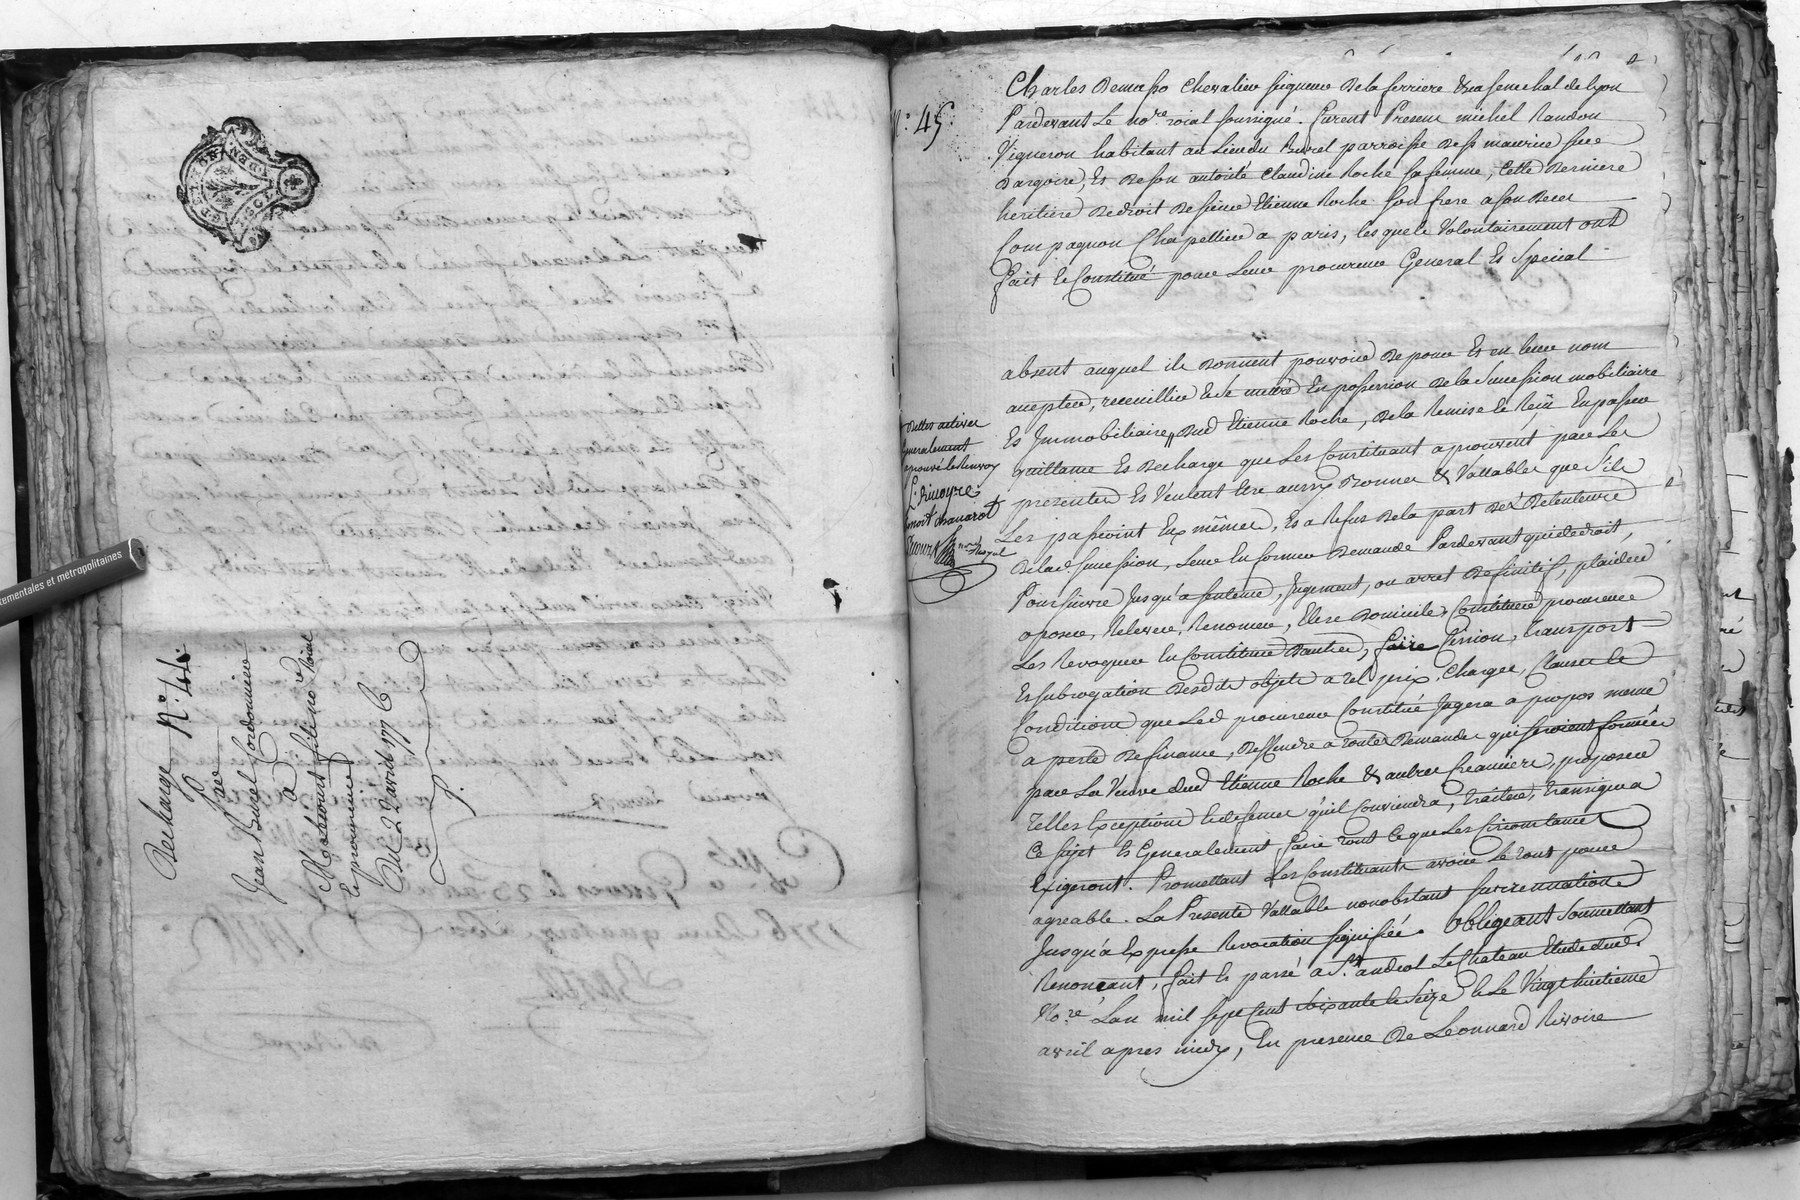 Decharge N.° 44.
Par
Jean Burel Cordonnier
à
M.e Mathieu Estournet fils no.re Roial
et procureur
Du 22 avril 1776
N.° 45
Charles Demasso Chevalier seigneur De la ferriere &ca senechal de lyon
Pardevant Le no.re roial soussigné. furent Presens michel Randon
Vigneron habitant au Lieu du Burel parroisse De st maurice sur
Dargoire, Et De son autorité Claudine Roche sa femme, Cette Derniere
heritiere De droit De sieur Etienne Roche son frere a son Deces
Compagnon Chapellier a paris, lesquels Volontairement ont
fait et Constitué pour Leur procureur General Et Special
absent auquel ils Donnent pouvoir De pour Et en leur nom
accepter, recueillir Et Se mettre En possession De la Succession mobiliaire
Et Immobiliaire, Dud Etienne Roche, De la Remise et Reçu En passer
quittance Et Decharge que Les Constituant aprouvent par Les
presentes Et Veulent Etre aussy Bonnes & Vallables que S'ils
Les passoint Eux mêmes, Et a Refus De la part Des Detenteurs
De lad. Succession, Leur En former Demande Pardevant qui de droit,
Poursuivre Jusqu'a sentence, Jugement, ou arret Definitif, plaider
oposer, Relever, Renoncer, Elire Domicile, Constituer procureur
Les Revoquer En Constituer D'autres, faire Cession, transport
Et subrogation Desdits objets a tel prix, Charges, Clauses et
Conditions que Led procureur Constitué Jugera a propos meme
a perte De finance, Deffendre a toutes Demandes qui seroient formées
par La Veuve dud Etienne Roche & autres Creanciers, proposer
Telles Exceptions et defenses qu'il Conviendra, traiter, transiger a
Ce sujet Et Generalement faire tout Ce que Les Circonstances
Exigeront. Promettant Les Constituants avoir Le tout pour
agreable. La Presente Vallable nonobstant surrennation
Jusqu'a Expresse Revocation signifiée. Obligeant Soumettant
Renonçant, fait et passé a St. andeol Le Chateau Etude dud.
No.re Lan mil sept Cent soixante et Seize et Le Vingt huitieme
avril apres midy, En presence De Leonnard Rivoire
Dettes actives
Generalement
aprouvé le Renvoy
L. Rivoyre
Benoit chavarot
nore Royal